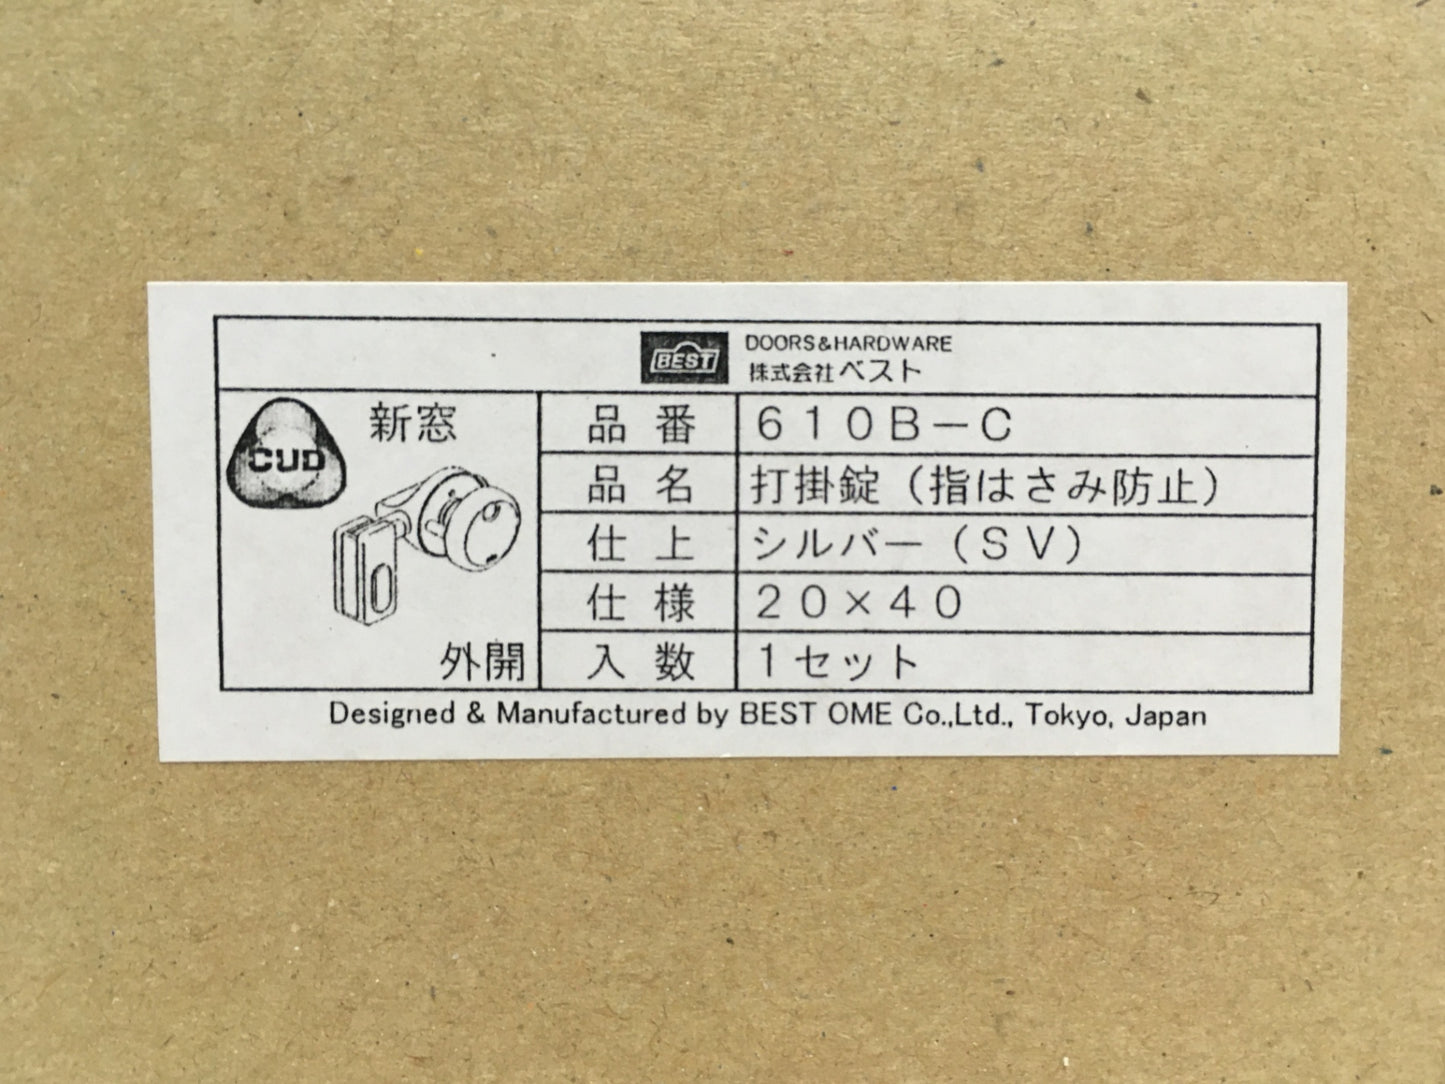 BEST
DOORS&HARDWARE
株式会社ベスト
CUD
新窓
外開
品番 610B-C
品名 打掛錠（指はさみ防止）
仕上 シルバー（SV）
仕様 20×40
入数 1セット
Designed & Manufactured by BEST OME Co.,Ltd., Tokyo, Japan